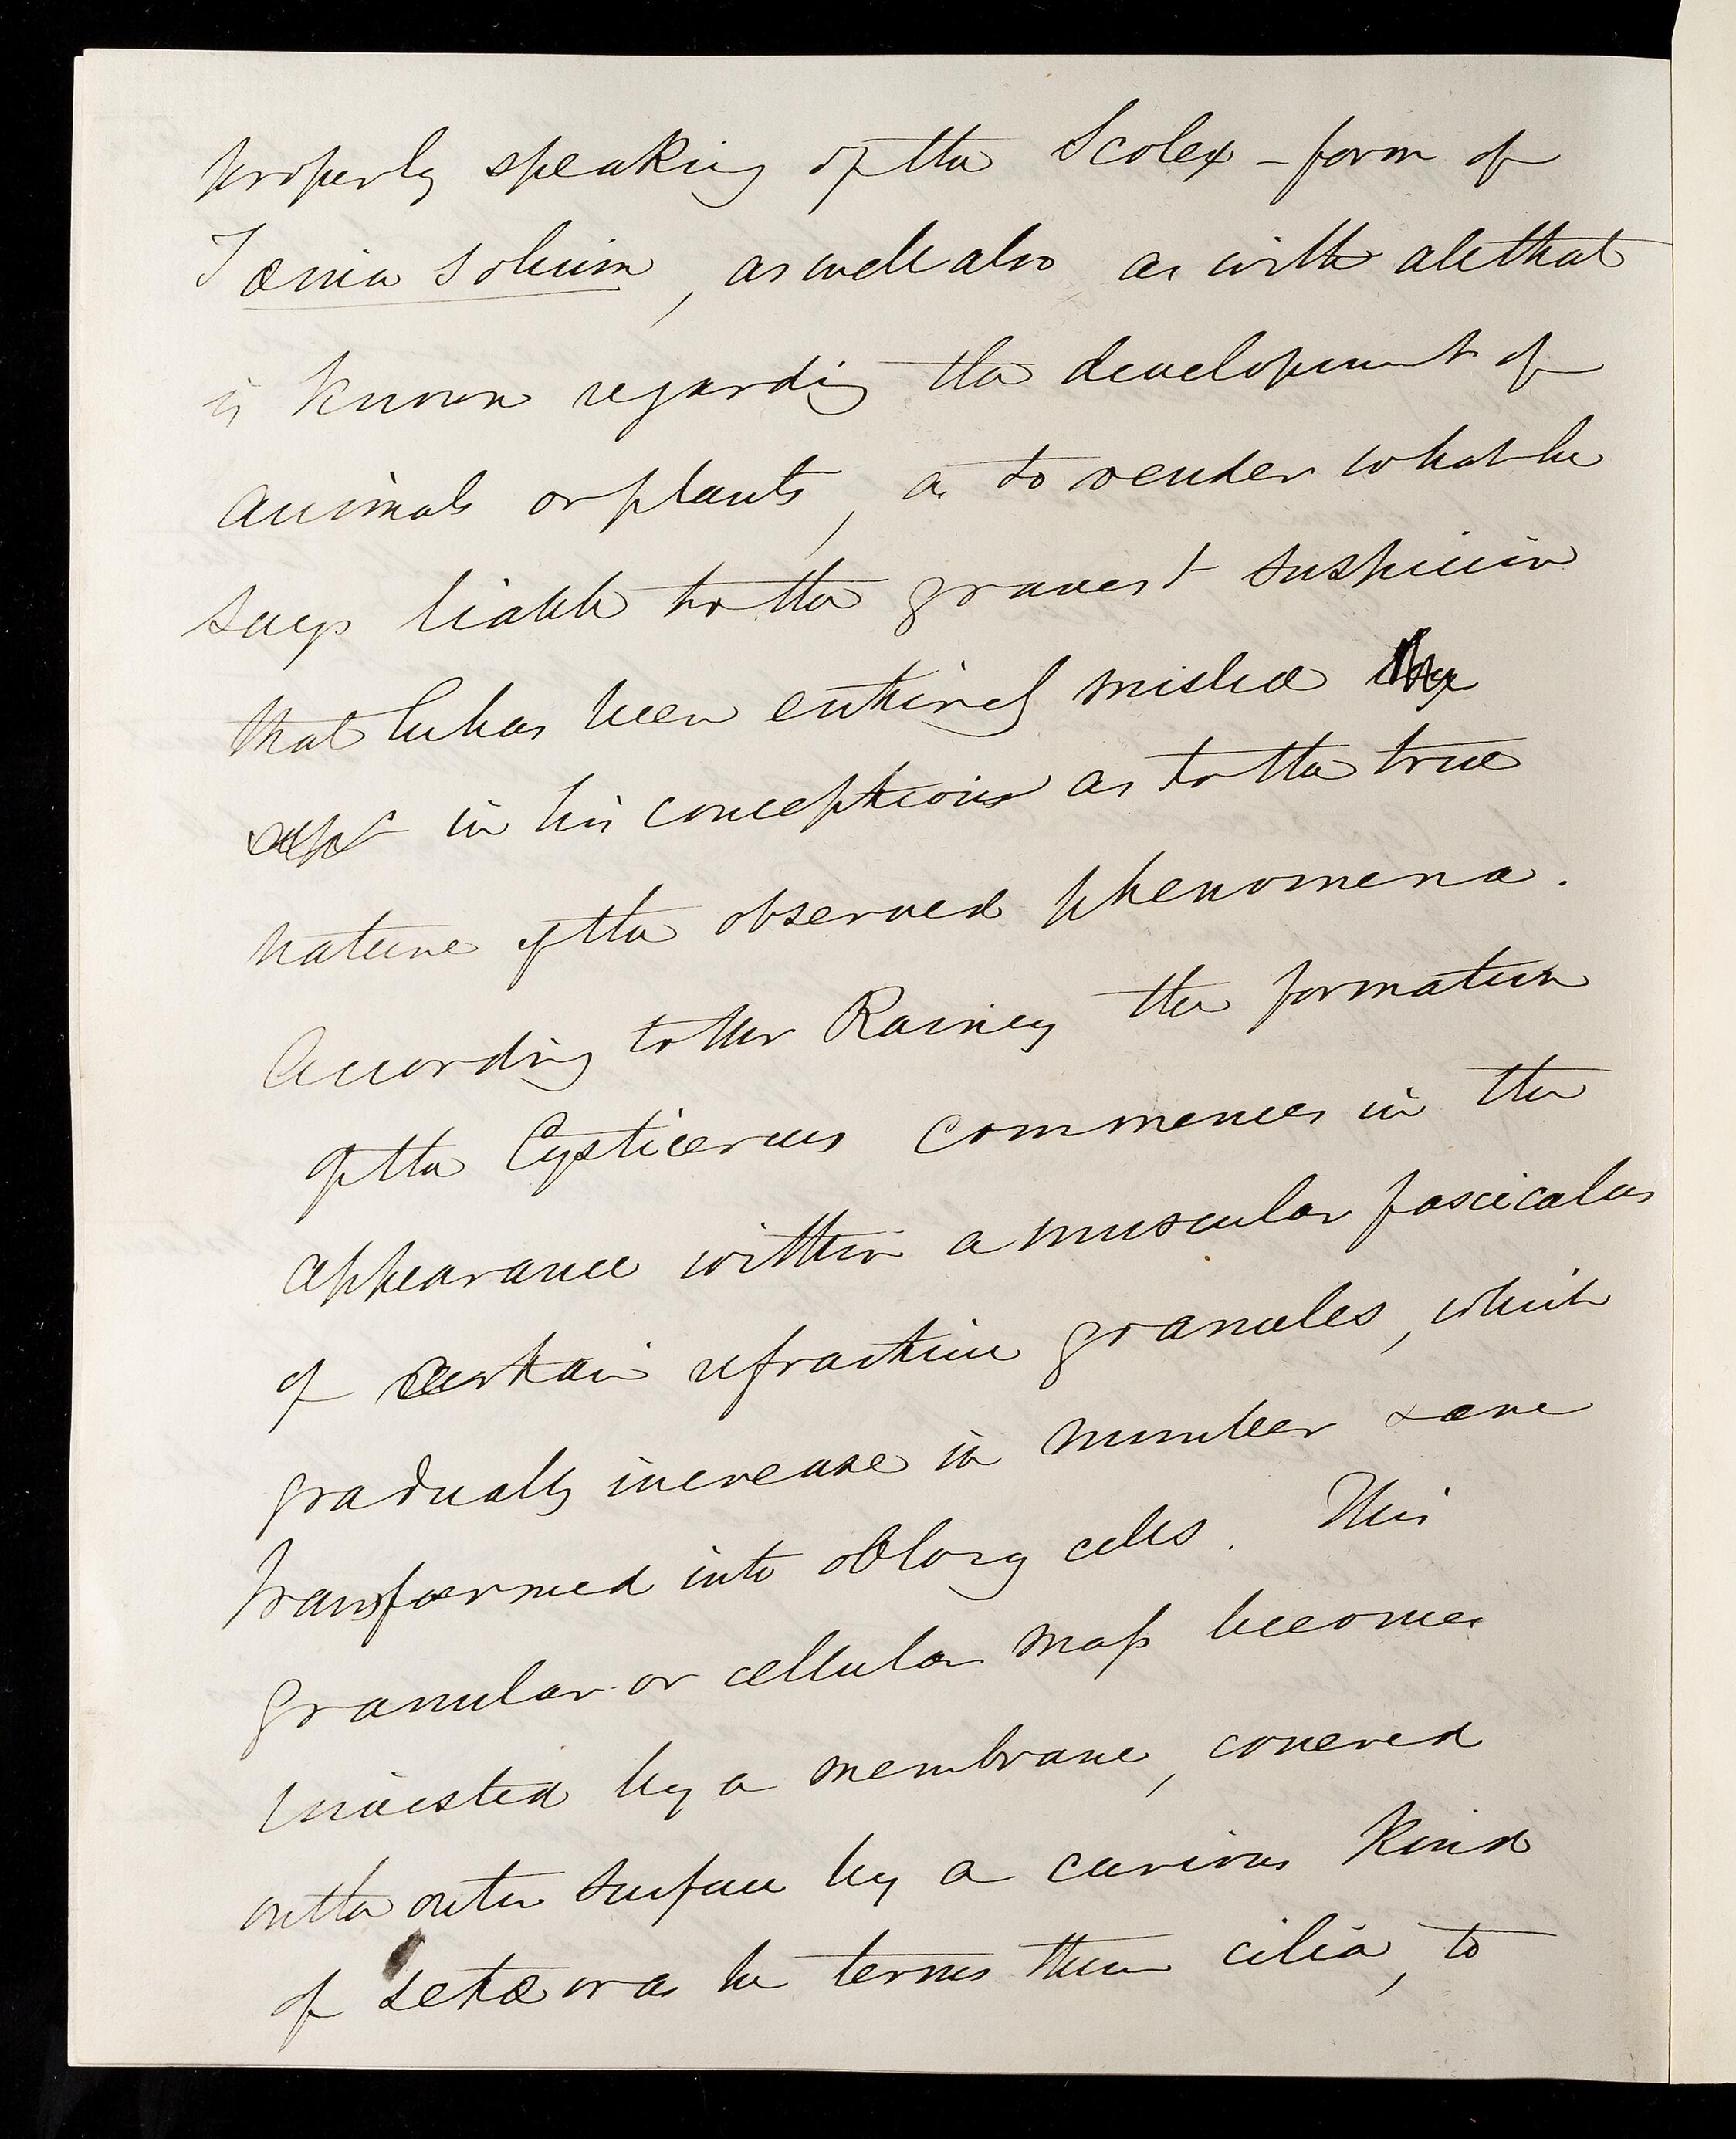 properly speaking of the Scolex-form of
Tænia solium, as well also as with all that
is known regarding the development of
animals or plants, as to render what he
says liable to the gravest suspicion
that he has been entirely misled
in his conceptions as to the true
nature of the observed phenomena.
According to Mr Rainey the formation
of the Cysticercus commences in the
appearance within a muscular fasciculus
of certain refractive granules, which
gradually increase in number & are
transformed into oblong cells. This
granular or cellular mass becomes
invested by a membrane, covered
on the outer surface by a curious kind
of setæ or as he terms them cilia, to